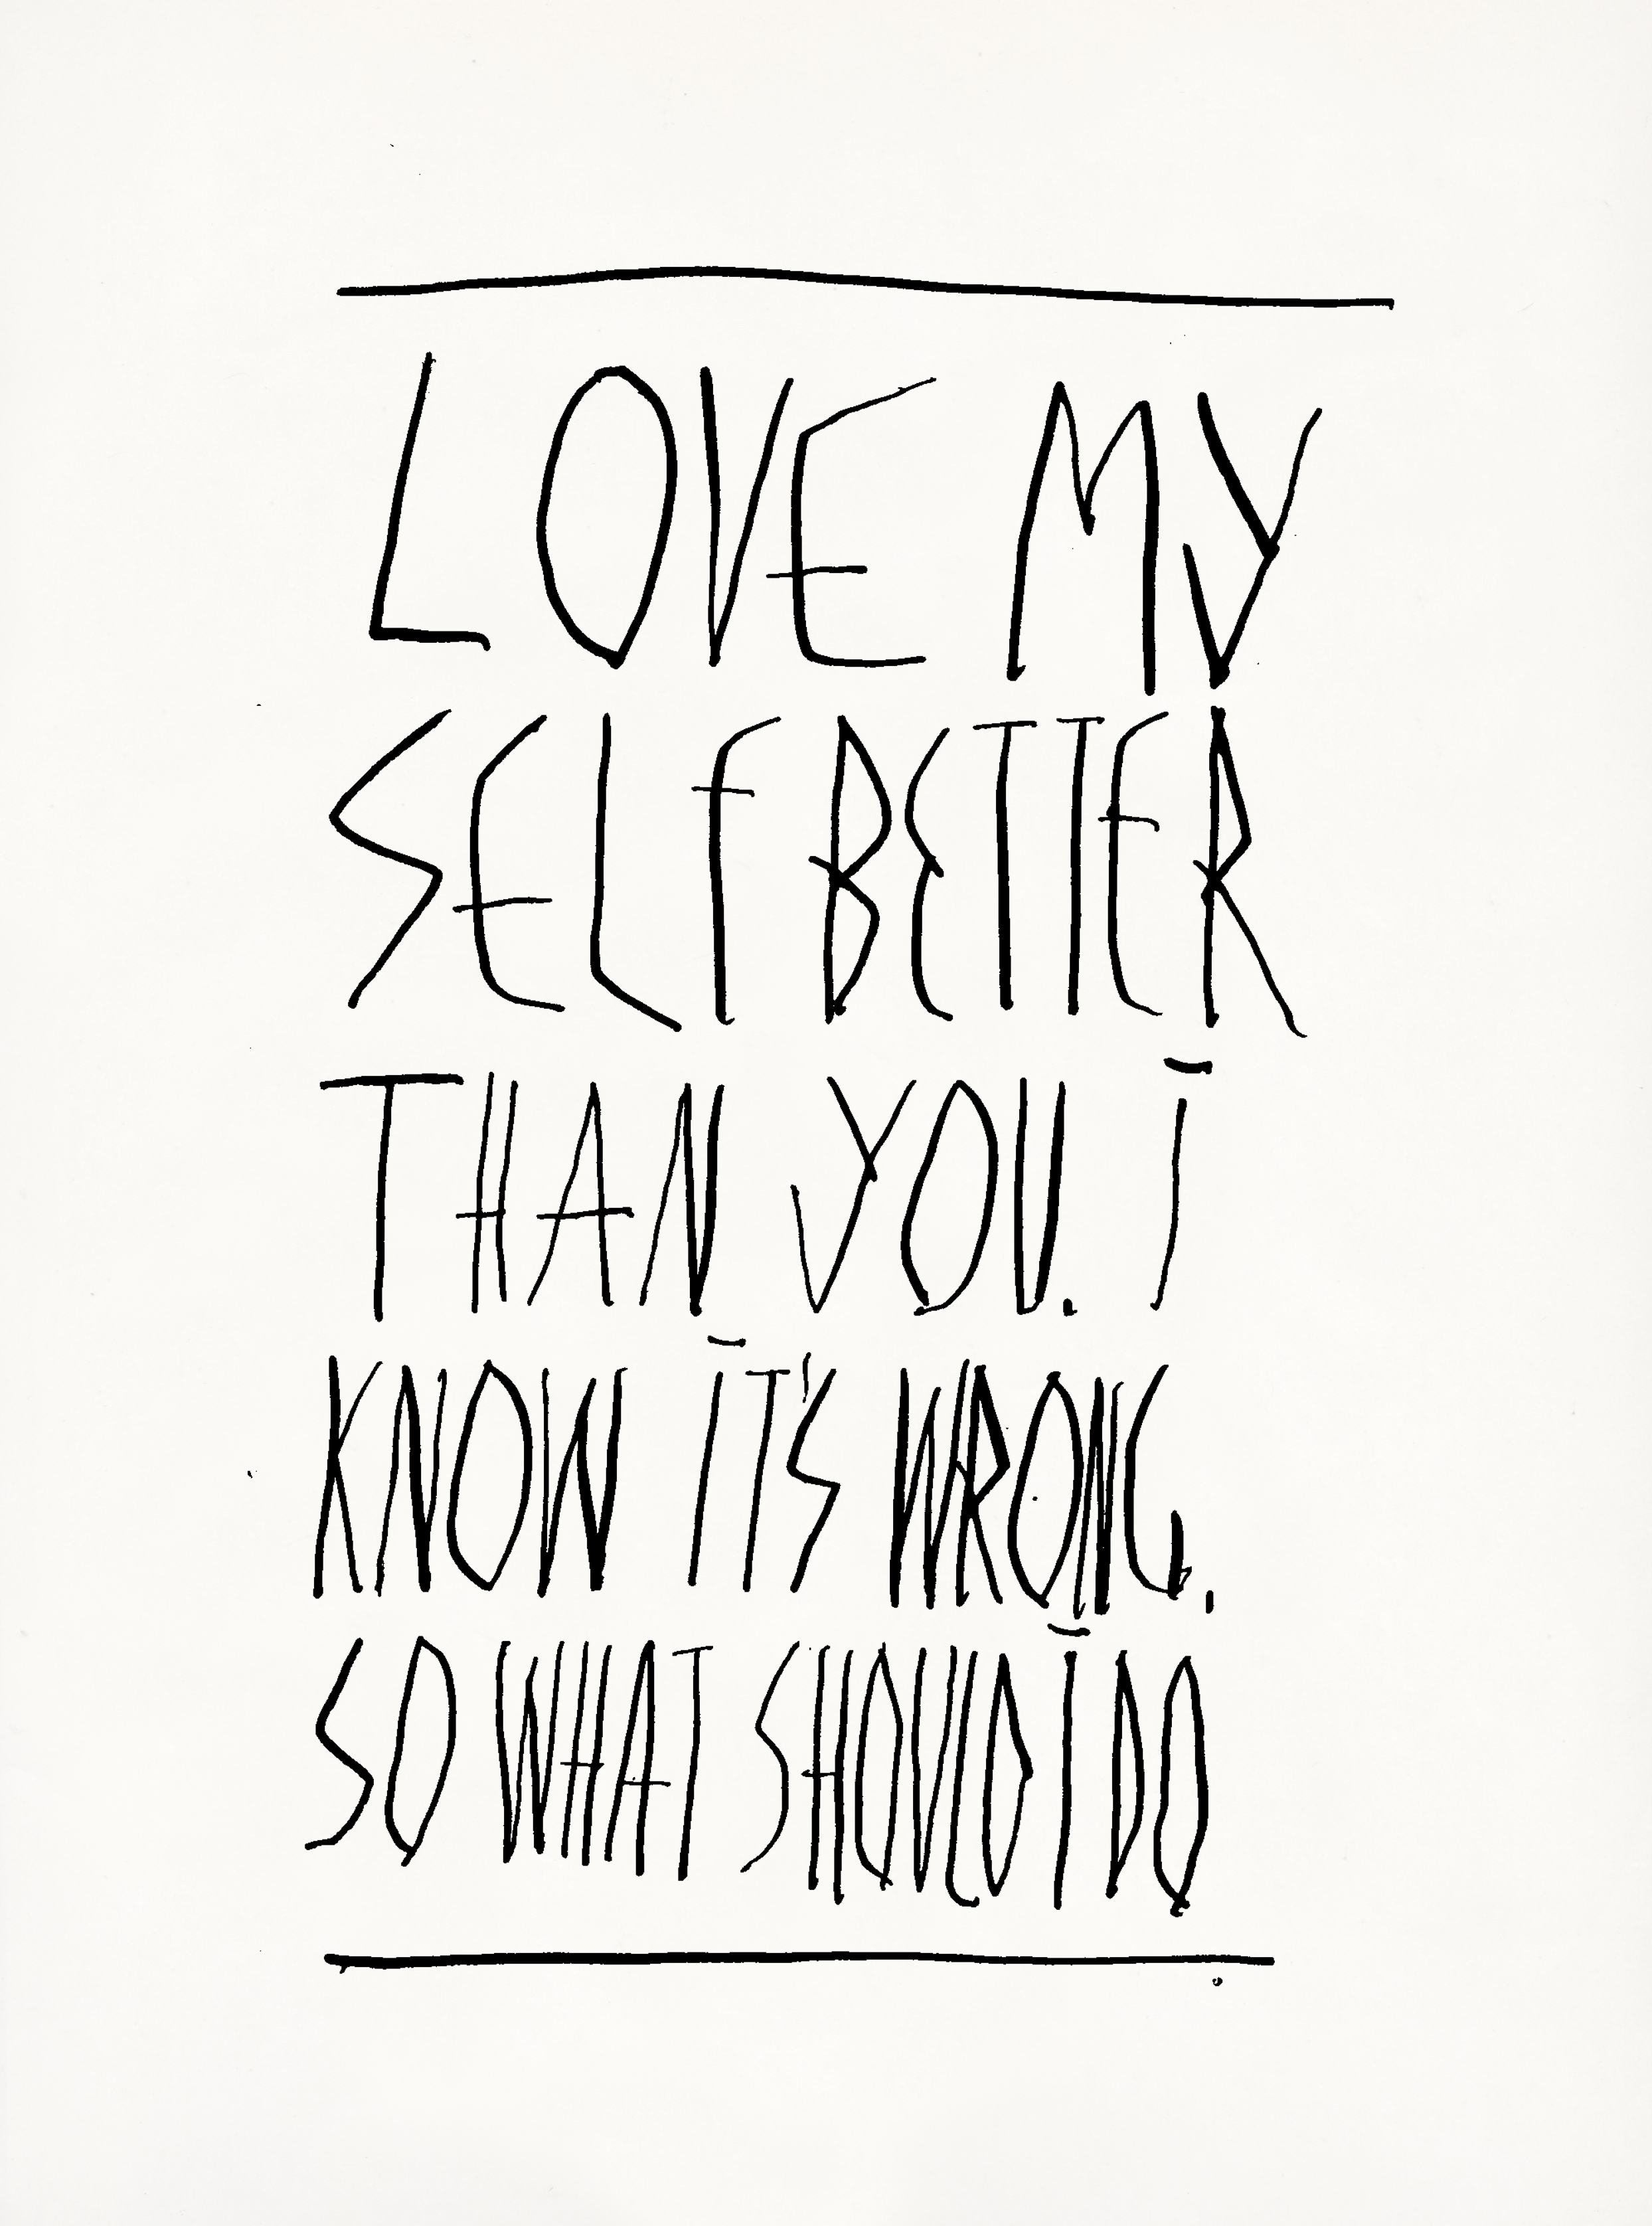 LOVE MY
SELF BETTER
THAN YOU. I
KNOW IT'S WRONG,
SO WHAT SHOULD I DO